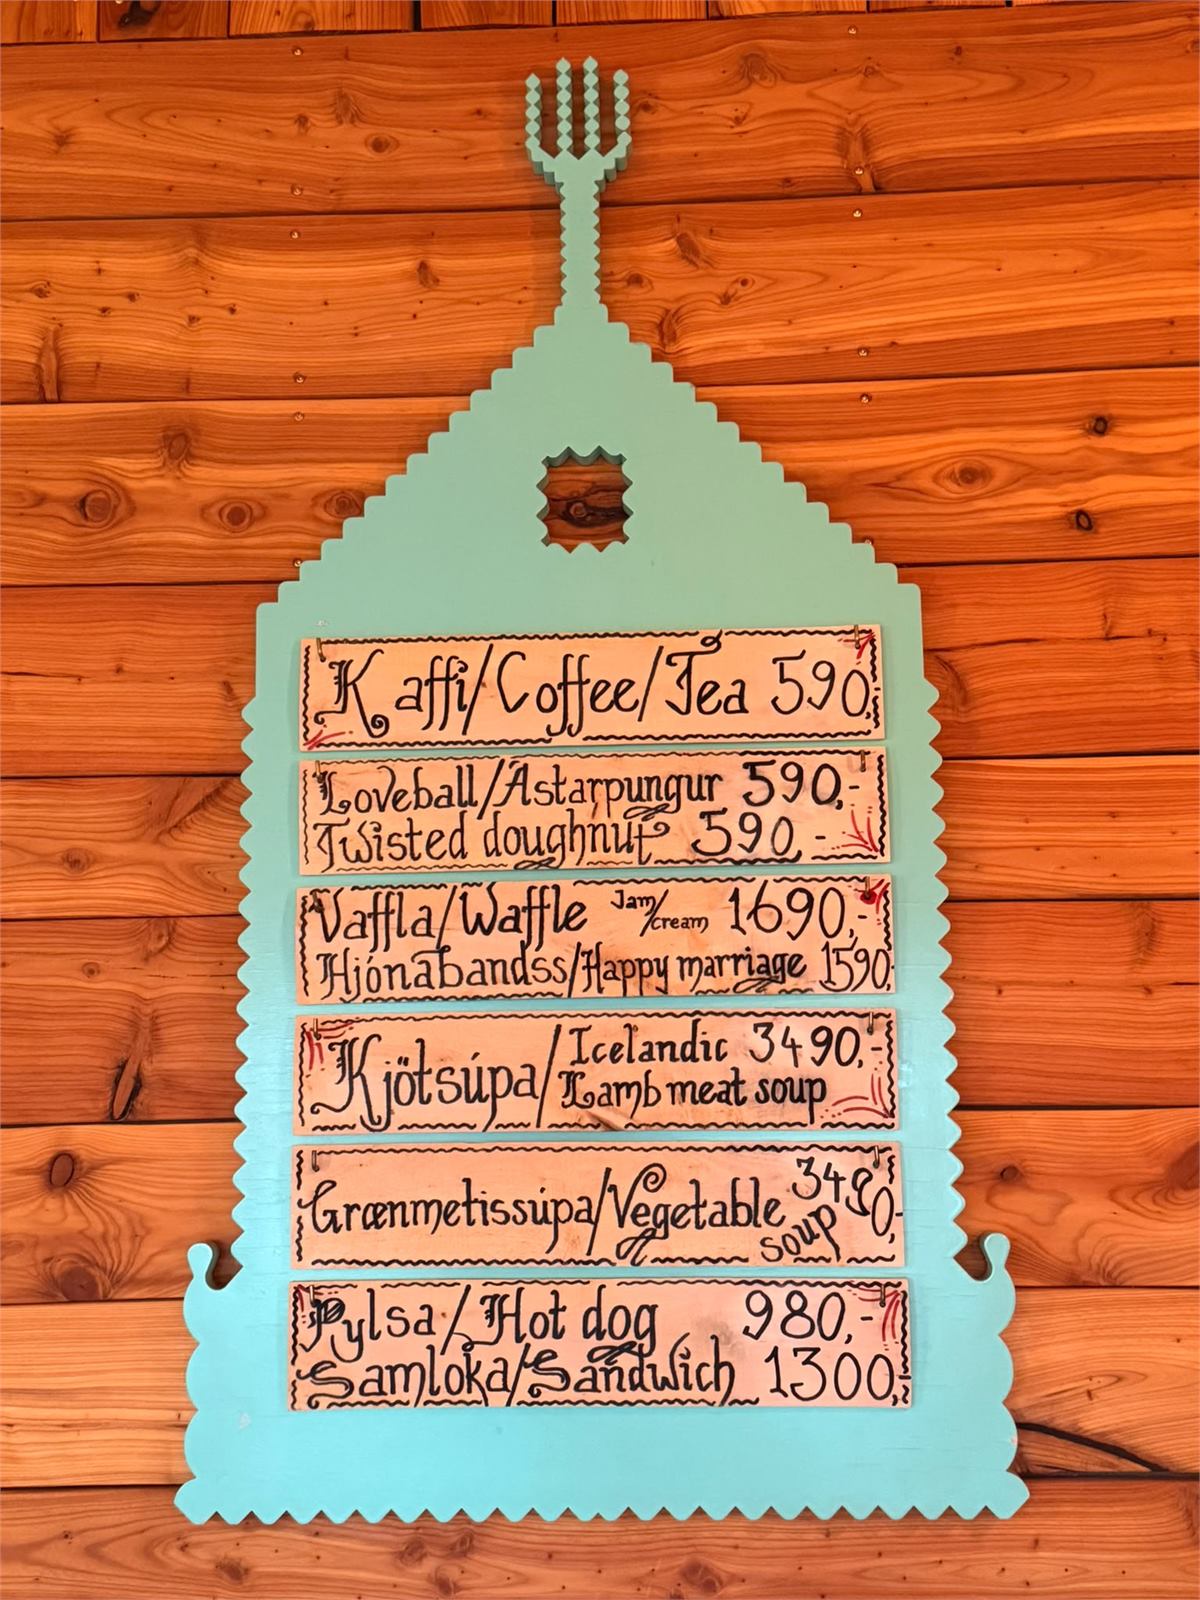 Kaffi/Coffee/Tea 590,-
Loveball/Ástarpungur 590,-
Twisted doughnut 590,-
Vaffla/Waffle Jam/cream 1690,-
Hjónabandss/Happy marriage 1590,-
Kjötsúpa/Icelandic 3490,-
Lamb meat soup
Grænmetissúpa/Vegetable 3490,-
soup
Pylsa/Hot dog 980,-
Samloka/Sandwich 1300,-